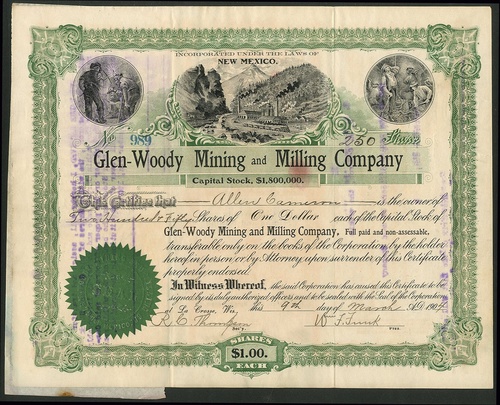 INCORPORATED UNDER THE LAWS OF
NEW MEXICO.
No 989
250 Shares
Glen-Woody Mining and Milling Company
Capital Stock, $1,800,000.
This Certifies that Allen Cameron is the owner of
Two Hundred & Fifty Shares of One Dollar each of the Capital Stock of
Glen-Woody Mining and Milling Company, Full paid and non-assessable.
transferable only on the books of the Corporation by the holder
hereof in person or by Attorney upon surrender of this Certificate
properly endorsed.
In Witness Whereof, the said Corporation has caused this Certificate to be
signed by its duly authorized officers and to be sealed with the Seal of the Corporation
at La Crosse, Wis. this 9th day of March A.D. 1904
SEC'Y.
PRES.
SHARES
$1.00.
EACH